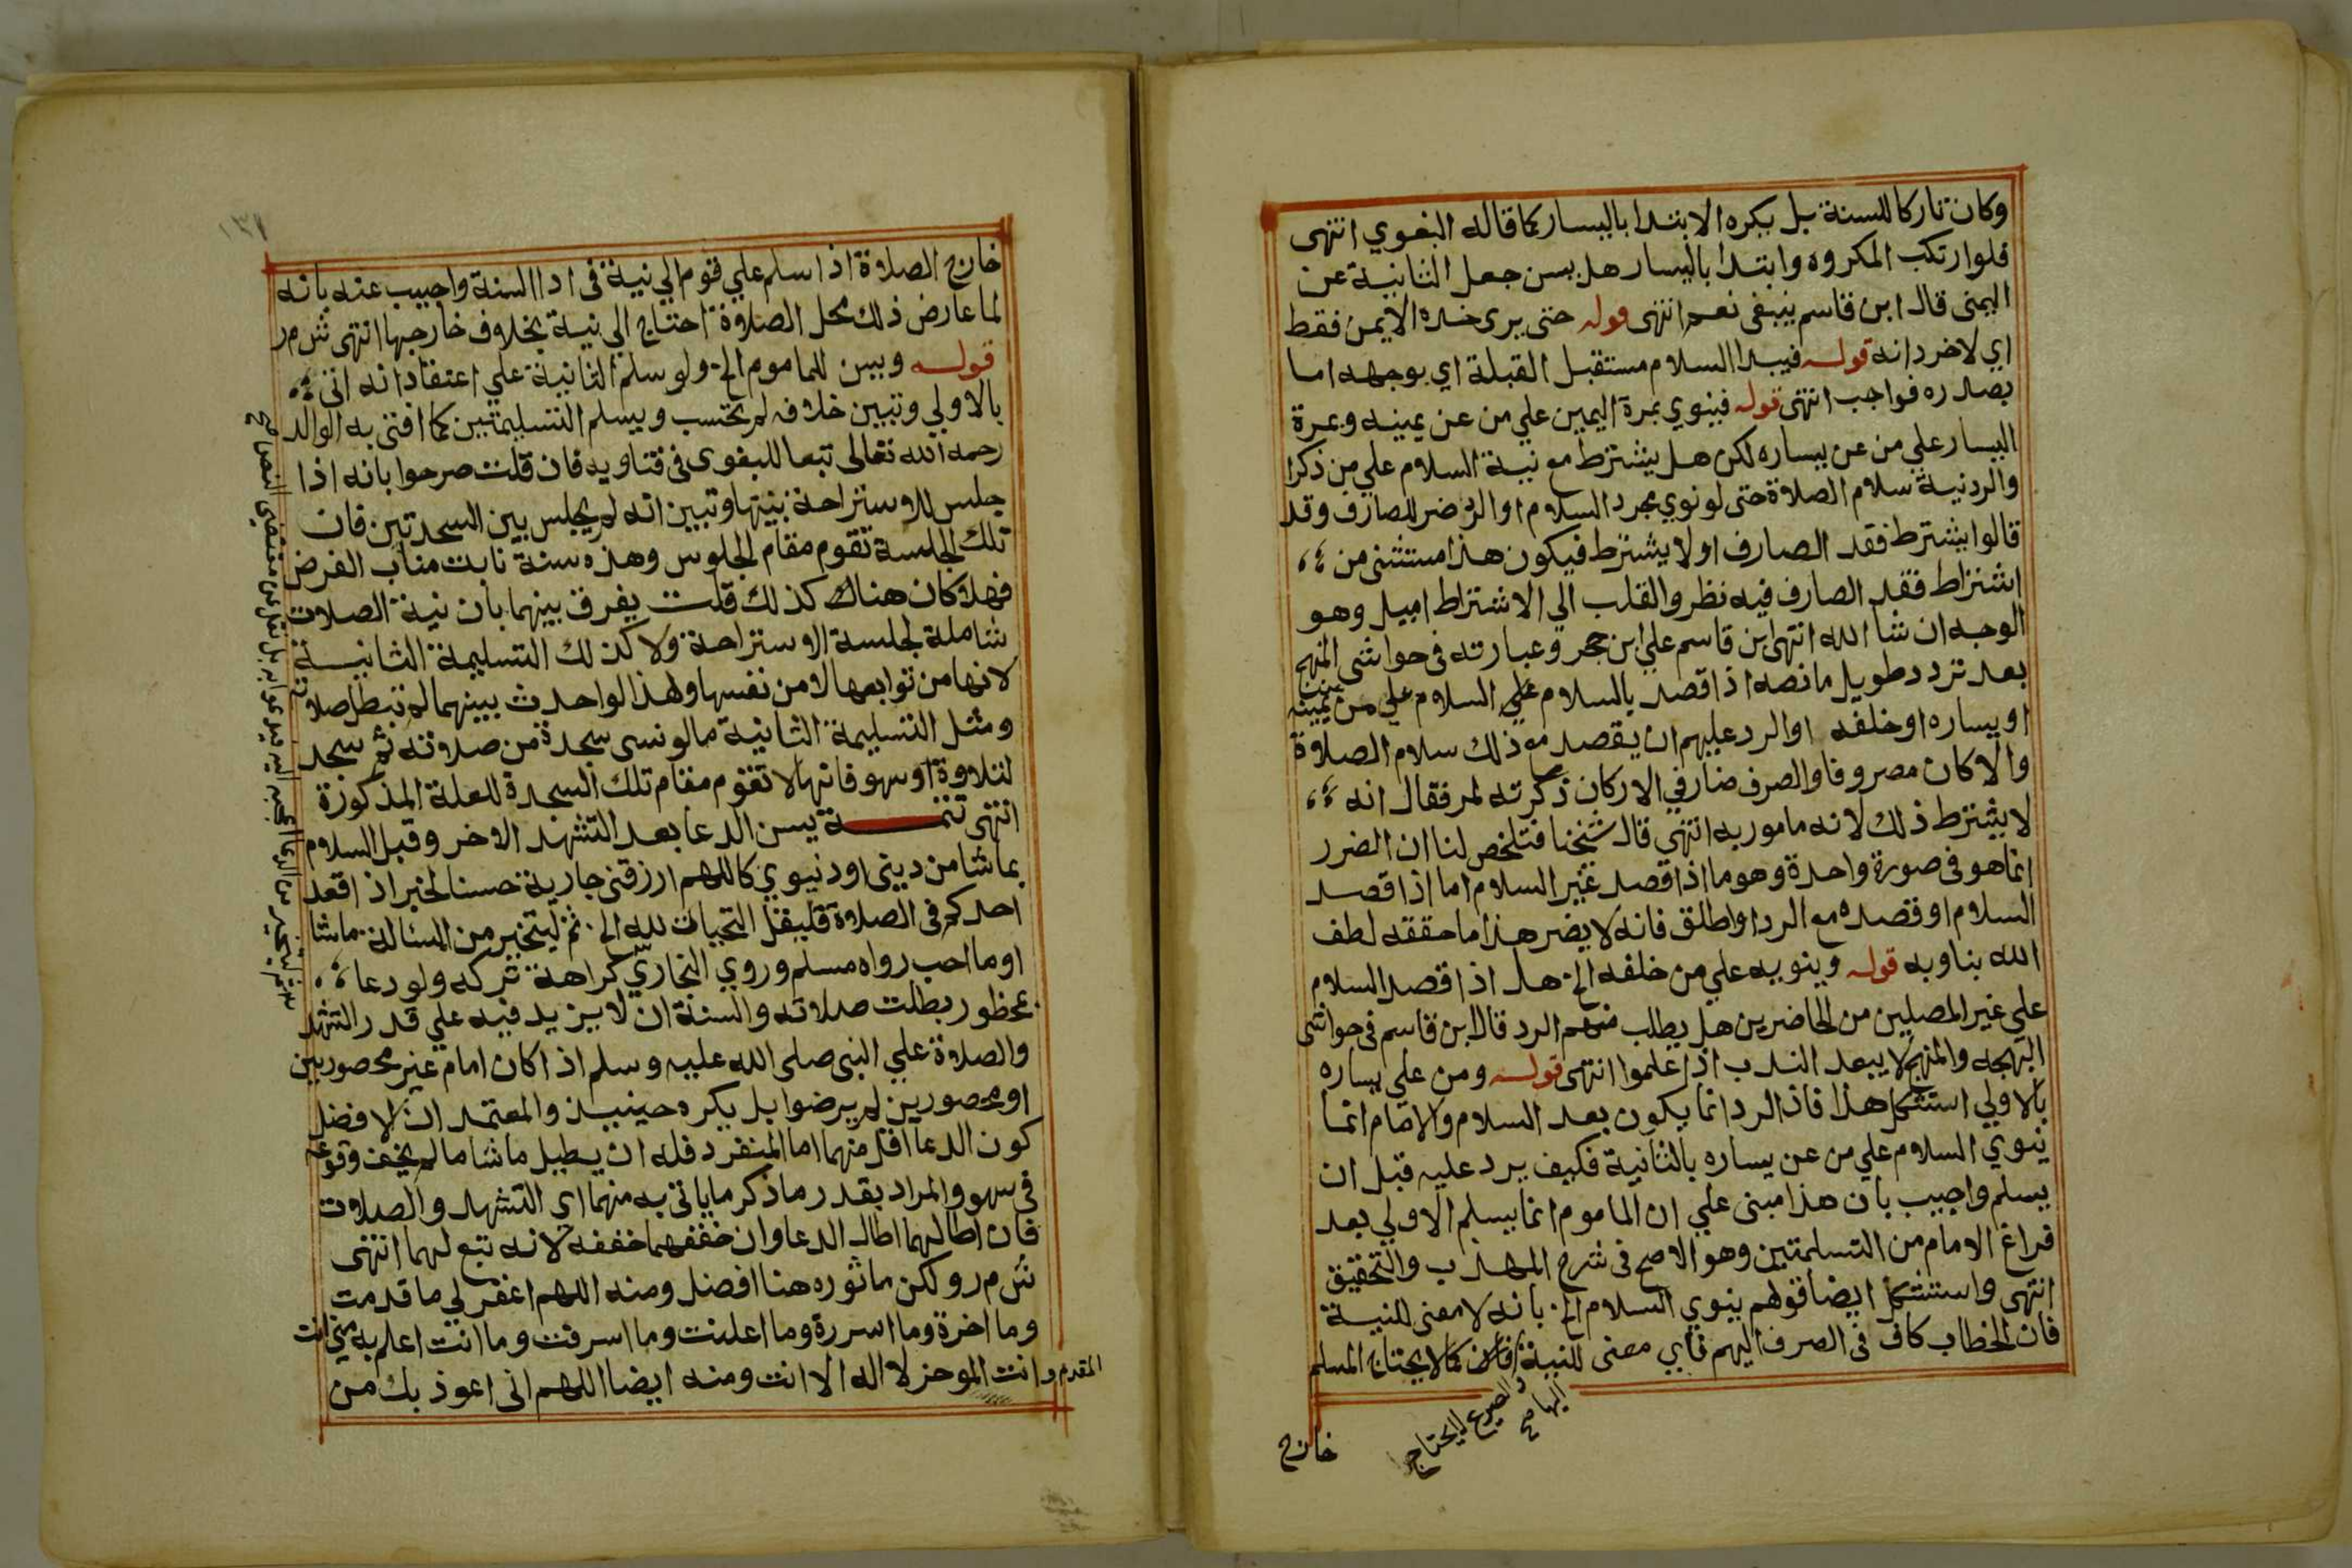 وكان تاركا للسنة بل يكره الابتدا باليسار كما قاله البغوي انتهى
فلو ارتكب المكروه وابتدا باليسار هل يسن جعل الثانية عن
اليمنى قال ابن قاسم ينبغى نعم انتهى قوله حتى يرى خده الايمن فقط
اي لا خردانه قوله فيبدا السلام مستقبل القبلة اي بوجهه اما
بصدره فواجب انتهى قوله فينوي بمرة اليمين علي من عن يمينه وبمرة
اليسار علي من عن يساره لكن هل يشترط مع نية السلام علي من ذكرا
والرد نية سلام الصلاة حتى لو نوي مجرد السلام او الرد ضر للصارف وقد
قالوا يشترط فقد الصارف او لا يشترط فيكون هذا مستثنى من
اشتراط فقد الصارف فيه نظر والقلب الي الاشتراط اميل وهو
الوجه ان شا الله انتهى ابن قاسم علي ابن حجر وعبارته فى حواشى المنهج
بعد تردد طويل ما نصه اذا قصد بالسلام علي السلام علي من عن يمينه
او يساره او خلفه او الرد عليهم ان يقصد مع ذلك سلام الصلاة
والا كان مصروفا والصرف ضار في الاركان ذكرته لمر فقال انه
لا يشترط ذلك لانه مامور به انتهى قال شيخنا فتلخص لنا ان الضرر
انما هو فى صورة واحدة وهو ما اذا قصد غير السلام اما اذا قصد
السلام او قصده مع الرد او اطلق فانه لا يضر هذا ما حققه لطف
الله بنا وبه قوله وينويه علي من خلفه الخ هل اذا قصد السلام
علي غير المصلين من الحاضرين هل يطلب منهم الرد قال ابن قاسم فى حواشى
البهجه والمنهج لا يبعد الندب اذا علموا انتهى قوله ومن علي يساره
بالاولي استشكل هذا فان الرد انما يكون بعد السلام والامام انما
ينوي السلام علي من عن يساره بالثانية فكيف يرد عليه قبل ان
يسلم واجيب بان هذا مبنى علي ان الماموم انما يسلم الاولي بعد
فراغ الامام من التسلمتين وهو الاصح فى شرح المهذب والتحقيق
انتهى واستشكل ايضا قولهم ينوي السلام الخ بانه لا معنى للنية
فان الخطاب كاف فى الصرف اليهم فاي معنى للنية كما لا يحتاج المسلم
والصريح لا يحتاج
اليها صح
خارج
١٣١
خارج الصلاة اذا سلم علي قوم الي نية فى ادا السنة واجيب عنه بانه
لما عارض ذلك محل الصلاوة احتاج الي نية بخلاف خارجها انتهى ش م ر
قوله ويسن للماموم الخ ولو سلم الثانية علي اعتقاد انه اتى
بالاولي وتبين خلافه لم تحتسب ويسلم التسليمتين كما افتى به الوالد
رحمه الله تعالى تبعا للبغوى فى فتاويه فان قلت صرحوا بانه اذا
جلس للاستراحة بنيتها وتبين انه لم يجلس بين السجدتين فان
تلك الجلسة تقوم مقام الجلوس وهذه سنة نابت مناب الفرض
فهلا كان هناك كذلك قلت يفرق بينهما بان نية الصلات
شاملة لجلسة الاستراحة ولا كذلك التسليمة الثانية
لانها من توابعها لا من نفسها ولهذا لو احدث بينهما لم تبطل صلاته
ومثل التسليمة الثانية ما لو نسى سجدة من صلاته ثم سجد
لتلاوة او سهو فانها لا تقوم مقام تلك السجدة للعلة المذكورة
انتهى تتمة يسن الدعا بعد التشهد الاخر وقبل السلام
بما شا من دينى او دنيوي كاللهم ارزقنى جارية حسنا لخبر اذا قعد
احدكم فى الصلاة فليقل التحيات لله الخ ثم ليتخير من المسالة ما شا
او ما احب رواه مسلم وروي البخاري كراهة تركه ولو دعا
بمحظور بطلت صلاته والسنة ان لا يزيد فيه علي قدر التشهد
والصلاة علي النبى صلى الله عليه وسلم اذا كان امام غير محصورين
او محصورين لم يرضوا بل يكره حينيذ والمعتمد ان الافضل
كون الدعا اقل منهما اما المنفرد فله ان يطيل ما شا ما لم يخف وقوعه
فى سهو والمراد بقدر ما ذكر ما ياتى به منهما اي التشهد والصلات
فان اطالهما اطال الدعا وان خففهما خففه لانه تبع لهما انتهى
ش م ر ولكن ماثوره هنا افضل ومنه اللهم اغفر لي ما قدمت
وما اخرة وما اسررة وما اعلنت وما اسرفت وما انت اعلم به منى انت
المقدم وانت الموخر لا اله الا انت ومنه ايضا اللهم انى اعوذ بك من